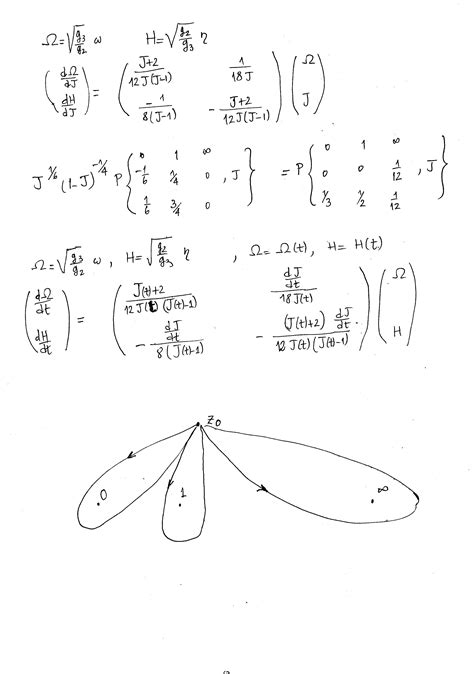 Ω = √(g₃/g₂) ω    H = √(g₂/g₃) η
( dΩ/dJ ; dH/dJ ) = ( (J+2)/(12J(J-1))   1/(18J) ; -1/(8(J-1))   -(J+2)/(12J(J-1)) ) ( Ω ; J )
J^{1/6} (1-J)^{-1/4} P{ 0 1 ∞ ; -1/6 1/4 0 , J ; 1/6 3/4 0 } = P{ 0 1 ∞ ; 0 0 1/12 , J ; 1/3 1/2 1/12 }
Ω = √(g₃/g₂) ω , H = √(g₂/g₃) η , Ω = Ω(t), H = H(t)
( dΩ/dt ; dH/dt ) = ( (J(t)+2)/(12 J(t) (J(t)-1))   (dJ/dt)/(18J(t)) ; -(dJ/dt)/(8(J(t)-1))   -((J(t)+2) dJ/dt)/(12 J(t)(J(t)-1)) ) ( Ω ; H )
z₀
0 1 ∞